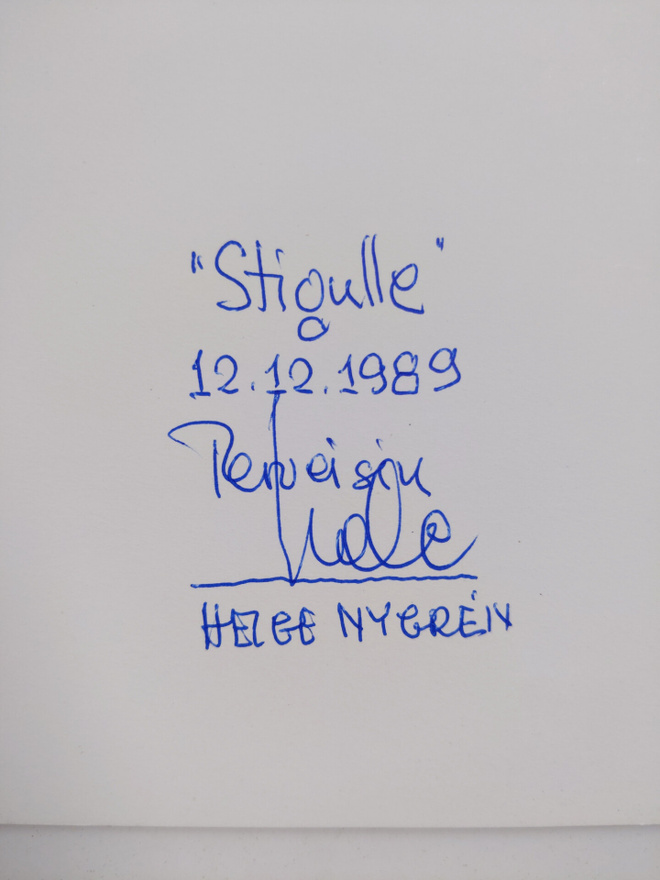 "Stigulle"
12.12.1989
Terveisin
HELGE NYGRÉN